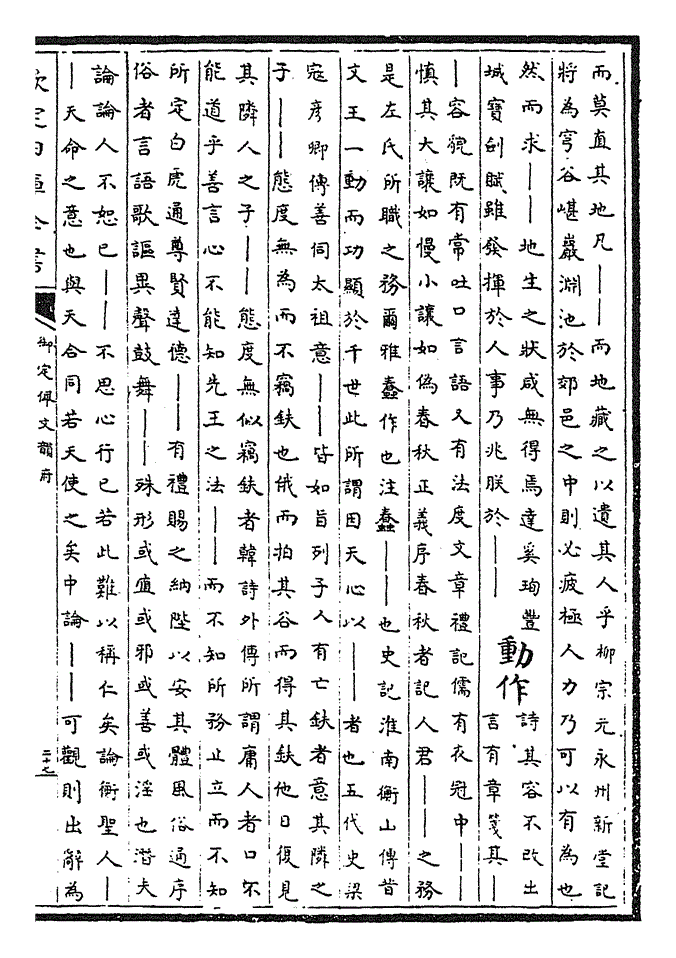 而莫直其地凡――而地藏之以遺其人乎柳宗元永州新堂記
將為穹谷嵁巖淵池於郊邑之中則必疲極人力乃可以有為也
然而求――地生之狀咸無得焉達奚珣豐
城寶劍賦雖發揮於人事乃兆朕於――
動作
詩其容不改出
言有章箋其―
―容貌既有常吐口言語又有法度文章禮記儒有衣冠中――
慎其大讓如慢小讓如偽春秋正義序春秋者記人君――之務
是左氏所職之務爾雅蠢作也注蠢――也史記淮南衡山傳昔
文王一動而功顯於千世此所謂因天心以――者也五代史梁
寇彥卿傳善伺太祖意――皆如旨列子人有亡鈇者意其隣之
子――態度無為而不竊鈇也俄而拍其谷而得其鈇他日復見
其隣人之子――態度無似竊鈇者韓詩外傳所謂庸人者口不
能道乎善言心不能知先王之法――而不知所務止立而不知
所定白虎通尊賢達德――有禮賜之納陛以安其體風俗通序
俗者言語歌謳異聲鼓舞――殊形或直或邪或善或淫也潛夫
論論人不恕己――不思心行己若此難以稱仁矣論衡聖人―
―天命之意也與天合同若天使之矣中論――可觀則出辭為
欽定四庫全書
御定佩文韻府
二十七